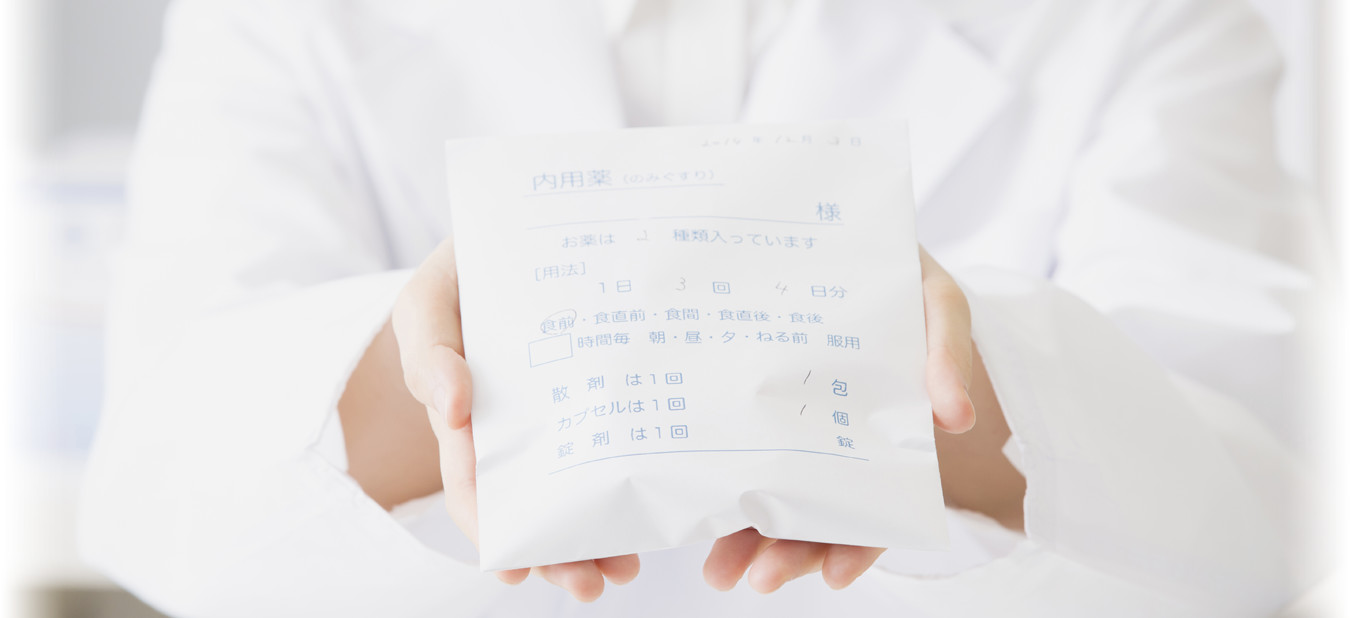 年 12月 3日
内用薬（のみぐすり）
様
お薬は 1 種類入っています
［用法］
1日 3 回 4 日分
食前・食直前・食間・食直後・食後
時間毎 朝・昼・夕・ねる前 服用
散 剤 は1回 / 包
カプセルは1回 / 個
錠 剤 は1回 錠